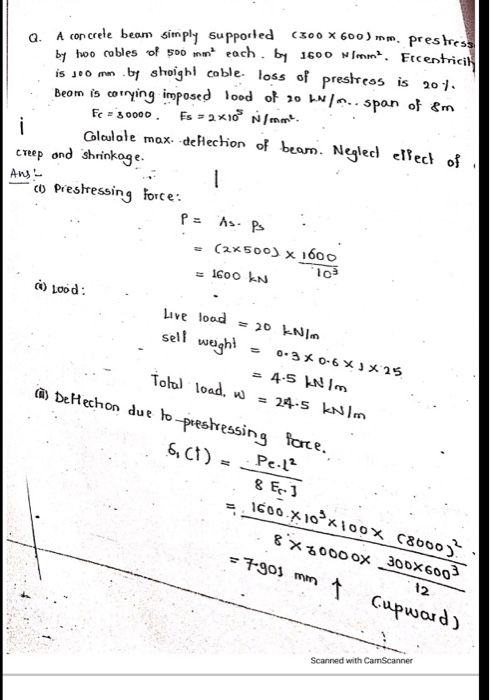 Q. A concrete beam simply supported (300 x 600) mm. prestress
by two cables of 500 mm² each. by 1600 N/mm². Eccentricity
is 100 mm .by straight cable. loss of prestress is 20 %.
Beam is carrying imposed load of 20 kN/m.. span of 8m
Ec = 30000. Es = 2x10⁵ N/mm².
i
Calculate max. deflection of beam. Neglect effect of
creep and shrinkage.
Ans:-
(i) Prestressing force:
P = As. Ps
= (2x500) x 1600 / 10³
= 1600 kN
(ii) Load:
Live load = 20 kN/m
self weight = 0.3 x 0.6 x 1 x 25
= 4.5 kN/m
Total load, w = 24.5 kN/m
(iii) Deflection due to prestressing force.
δ₁(↑) = Pe.l² / 8 Ec.I
= 1600 x 10³ x 100 x (8000)² / 8 x 30000 x 300x600³ / 12
= 7.901 mm ↑ (upward)
Scanned with CamScanner